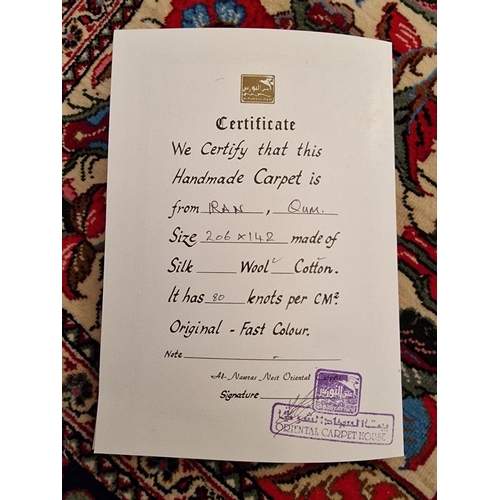 Certificate
We Certify that this
Handmade Carpet is
from IRAN, Qum.
Size 206 x 142 made of
Silk ____ Wool ✓ Cotton.
It has 80 knots per CM².
Original - Fast Colour.
Note
Al- Nawras Nest Oriental
Signature
بيت السجاد الشرقي
ORIENTAL CARPET HOUSE